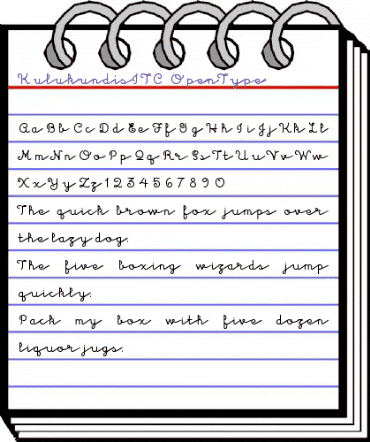 KulukundisITC OpenType
Aa Bb Cc Dd Ee Ff Gg Hh Ii Jj Kk Ll
Mm Nn Oo Pp Qq Rr Ss Tt Uu Vv Ww
Xx Yy Zz 1 2 3 4 5 6 7 8 9 0
The quick brown fox jumps over
the lazy dog.
The five boxing wizards jump
quickly.
Pack my box with five dozen
liquor jugs.